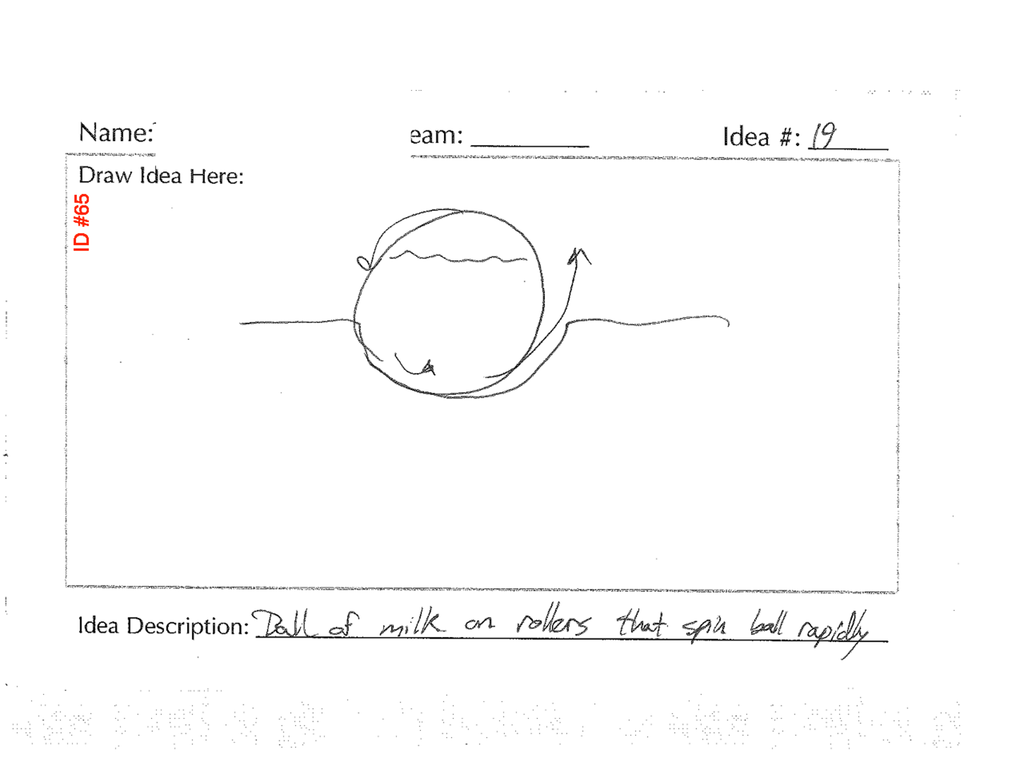 Name: eam: Idea #: 19
Draw Idea Here:
ID #65
Idea Description: Ball of milk on rollers that spin ball rapidly